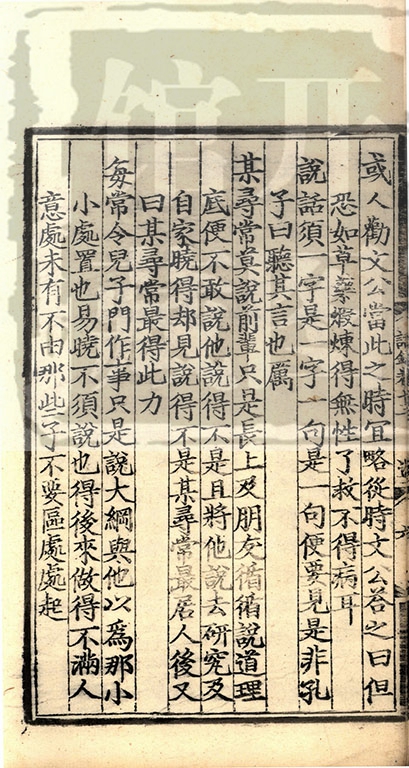 或人勸文公當此之時宜略從時文公荅之曰但
恐如草藥煅煉得無性了救不得病耳
說話須一字是一字一句是一句便要見是非孔
子曰聽其言也厲
某尋常莫說前輩只是長上及朋友循循說道理
底便不敢說他說得不是且將他說去研究及
自家曉得却見說得不是某尋常最居人後又
曰某尋常最得此力
每常令兒子門作事只是說大綱與他以爲那小
小處置也易曉不須說也得後來做得不滿人
意處未有不由那些子不要區處處起